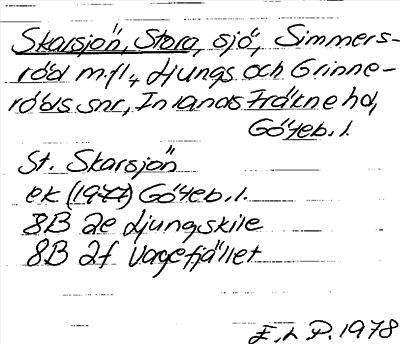 Skarsjön, Stora, sjö, Simmers-
röd m.fl., Ljungs och Grinne-
röds snr, Inlands Fräkne hd,
Göteb. l.
St. Skarsjön
ek (1977) Göteb. l.
8B 2e Ljungskile
8B 2f Vagefjället
E. L. P. 1978